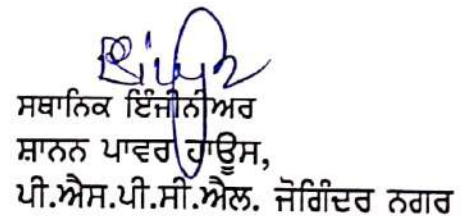 ਸਥਾਨਿਕ ਇੰਜੀਨੀਅਰ
ਸ਼ਾਨਨ ਪਾਵਰ ਹਾਊਸ,
ਪੀ.ਐਸ.ਪੀ.ਸੀ.ਐਲ. ਜੋਗਿੰਦਰ ਨਗਰ